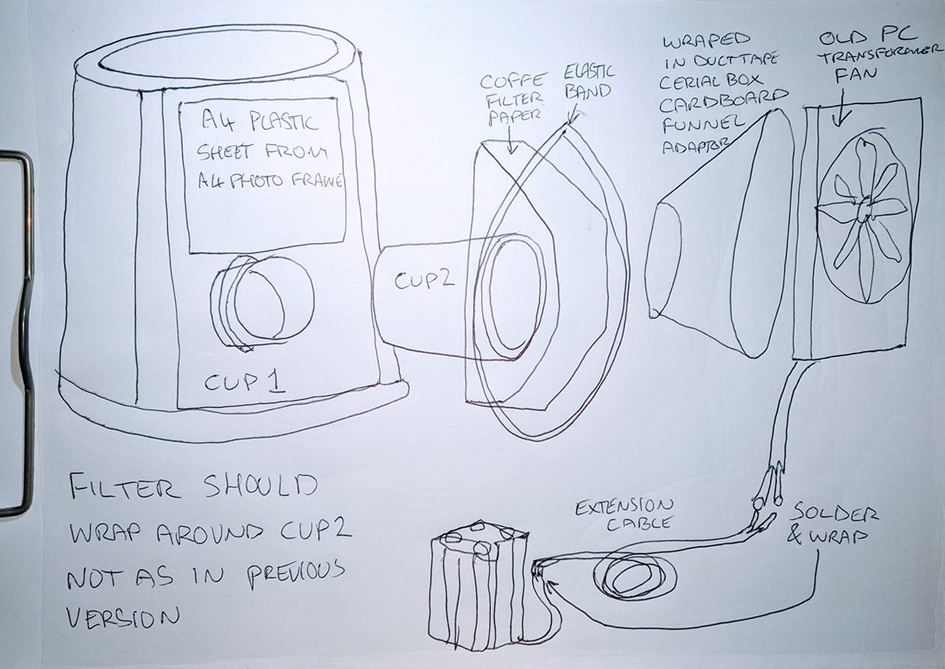 A4 PLASTIC
SHEET FROM
A4 PHOTO FRAME
CUP 1
CUP 2
COFFE
FILTER
PAPER
ELASTIC
BAND
WRAPED
IN DUCT TAPE
CERIAL BOX
CARDBOARD
FUNNEL
ADAPTOR
OLD PC
TRANSFORMER
FAN
EXTENSION
CABLE
SOLDER
& WRAP
FILTER SHOULD
WRAP AROUND CUP2
NOT AS IN PREVIOUS
VERSION